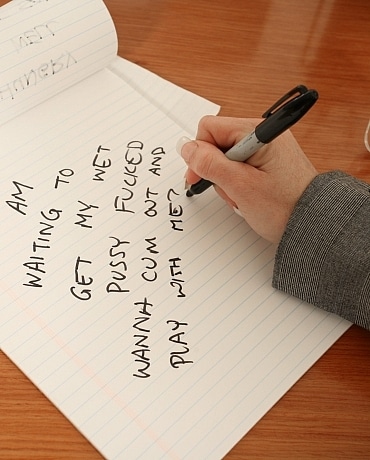 VERY
HUNGRY
AM
WAITING TO
GET MY WET
PUSSY FUCKED
WANNA CUM OUT AND
PLAY WITH ME?